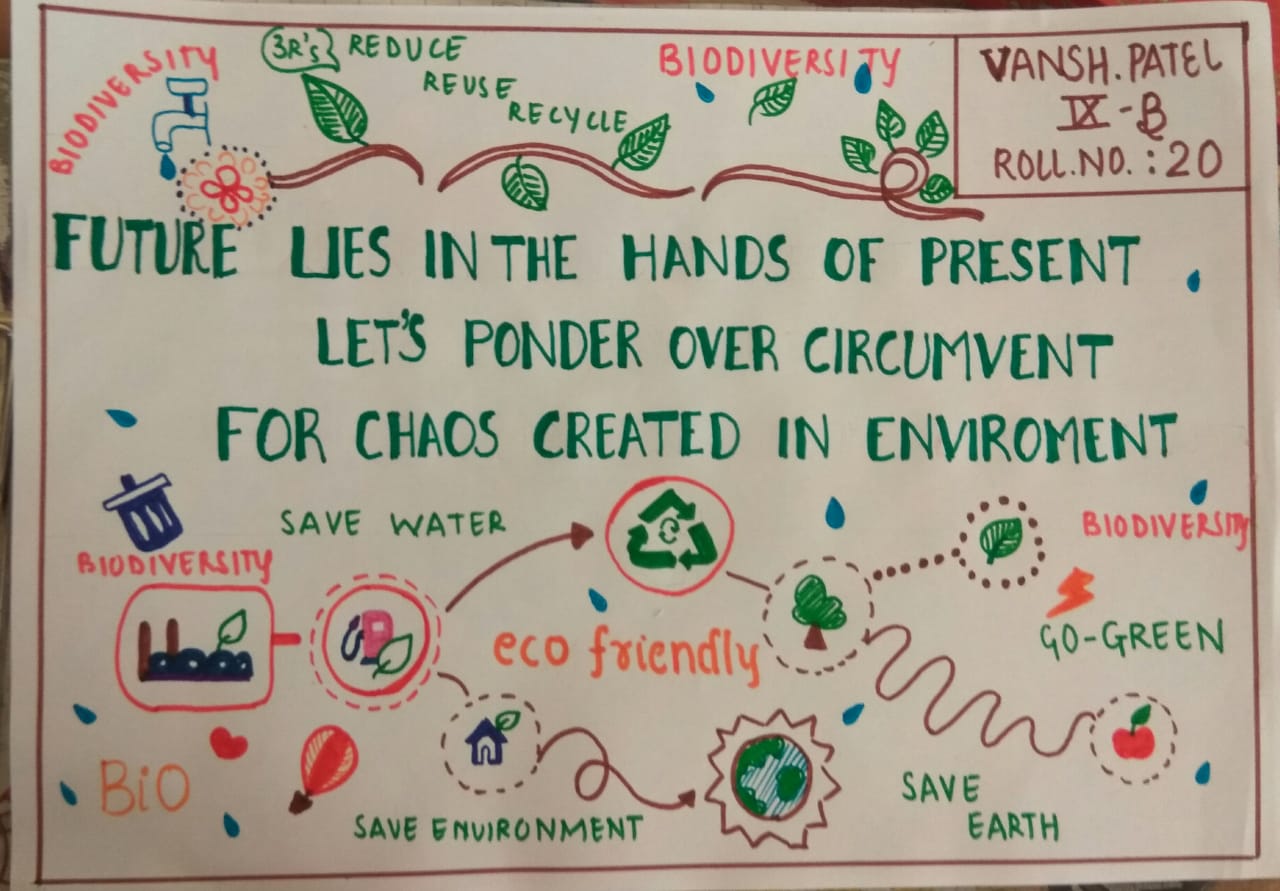 BIODIVERSITY
3R's REDUCE
REUSE
RECYCLE
BIODIVERSITY
VANSH. PATEL
IX - B
ROLL.NO. : 20
FUTURE LIES IN THE HANDS OF PRESENT
LET'S PONDER OVER CIRCUMVENT
FOR CHAOS CREATED IN ENVIROMENT
SAVE WATER
BIODIVERSITY
BIODIVERSITY
eco friendly
GO-GREEN
BiO
SAVE ENVIRONMENT
SAVE
EARTH